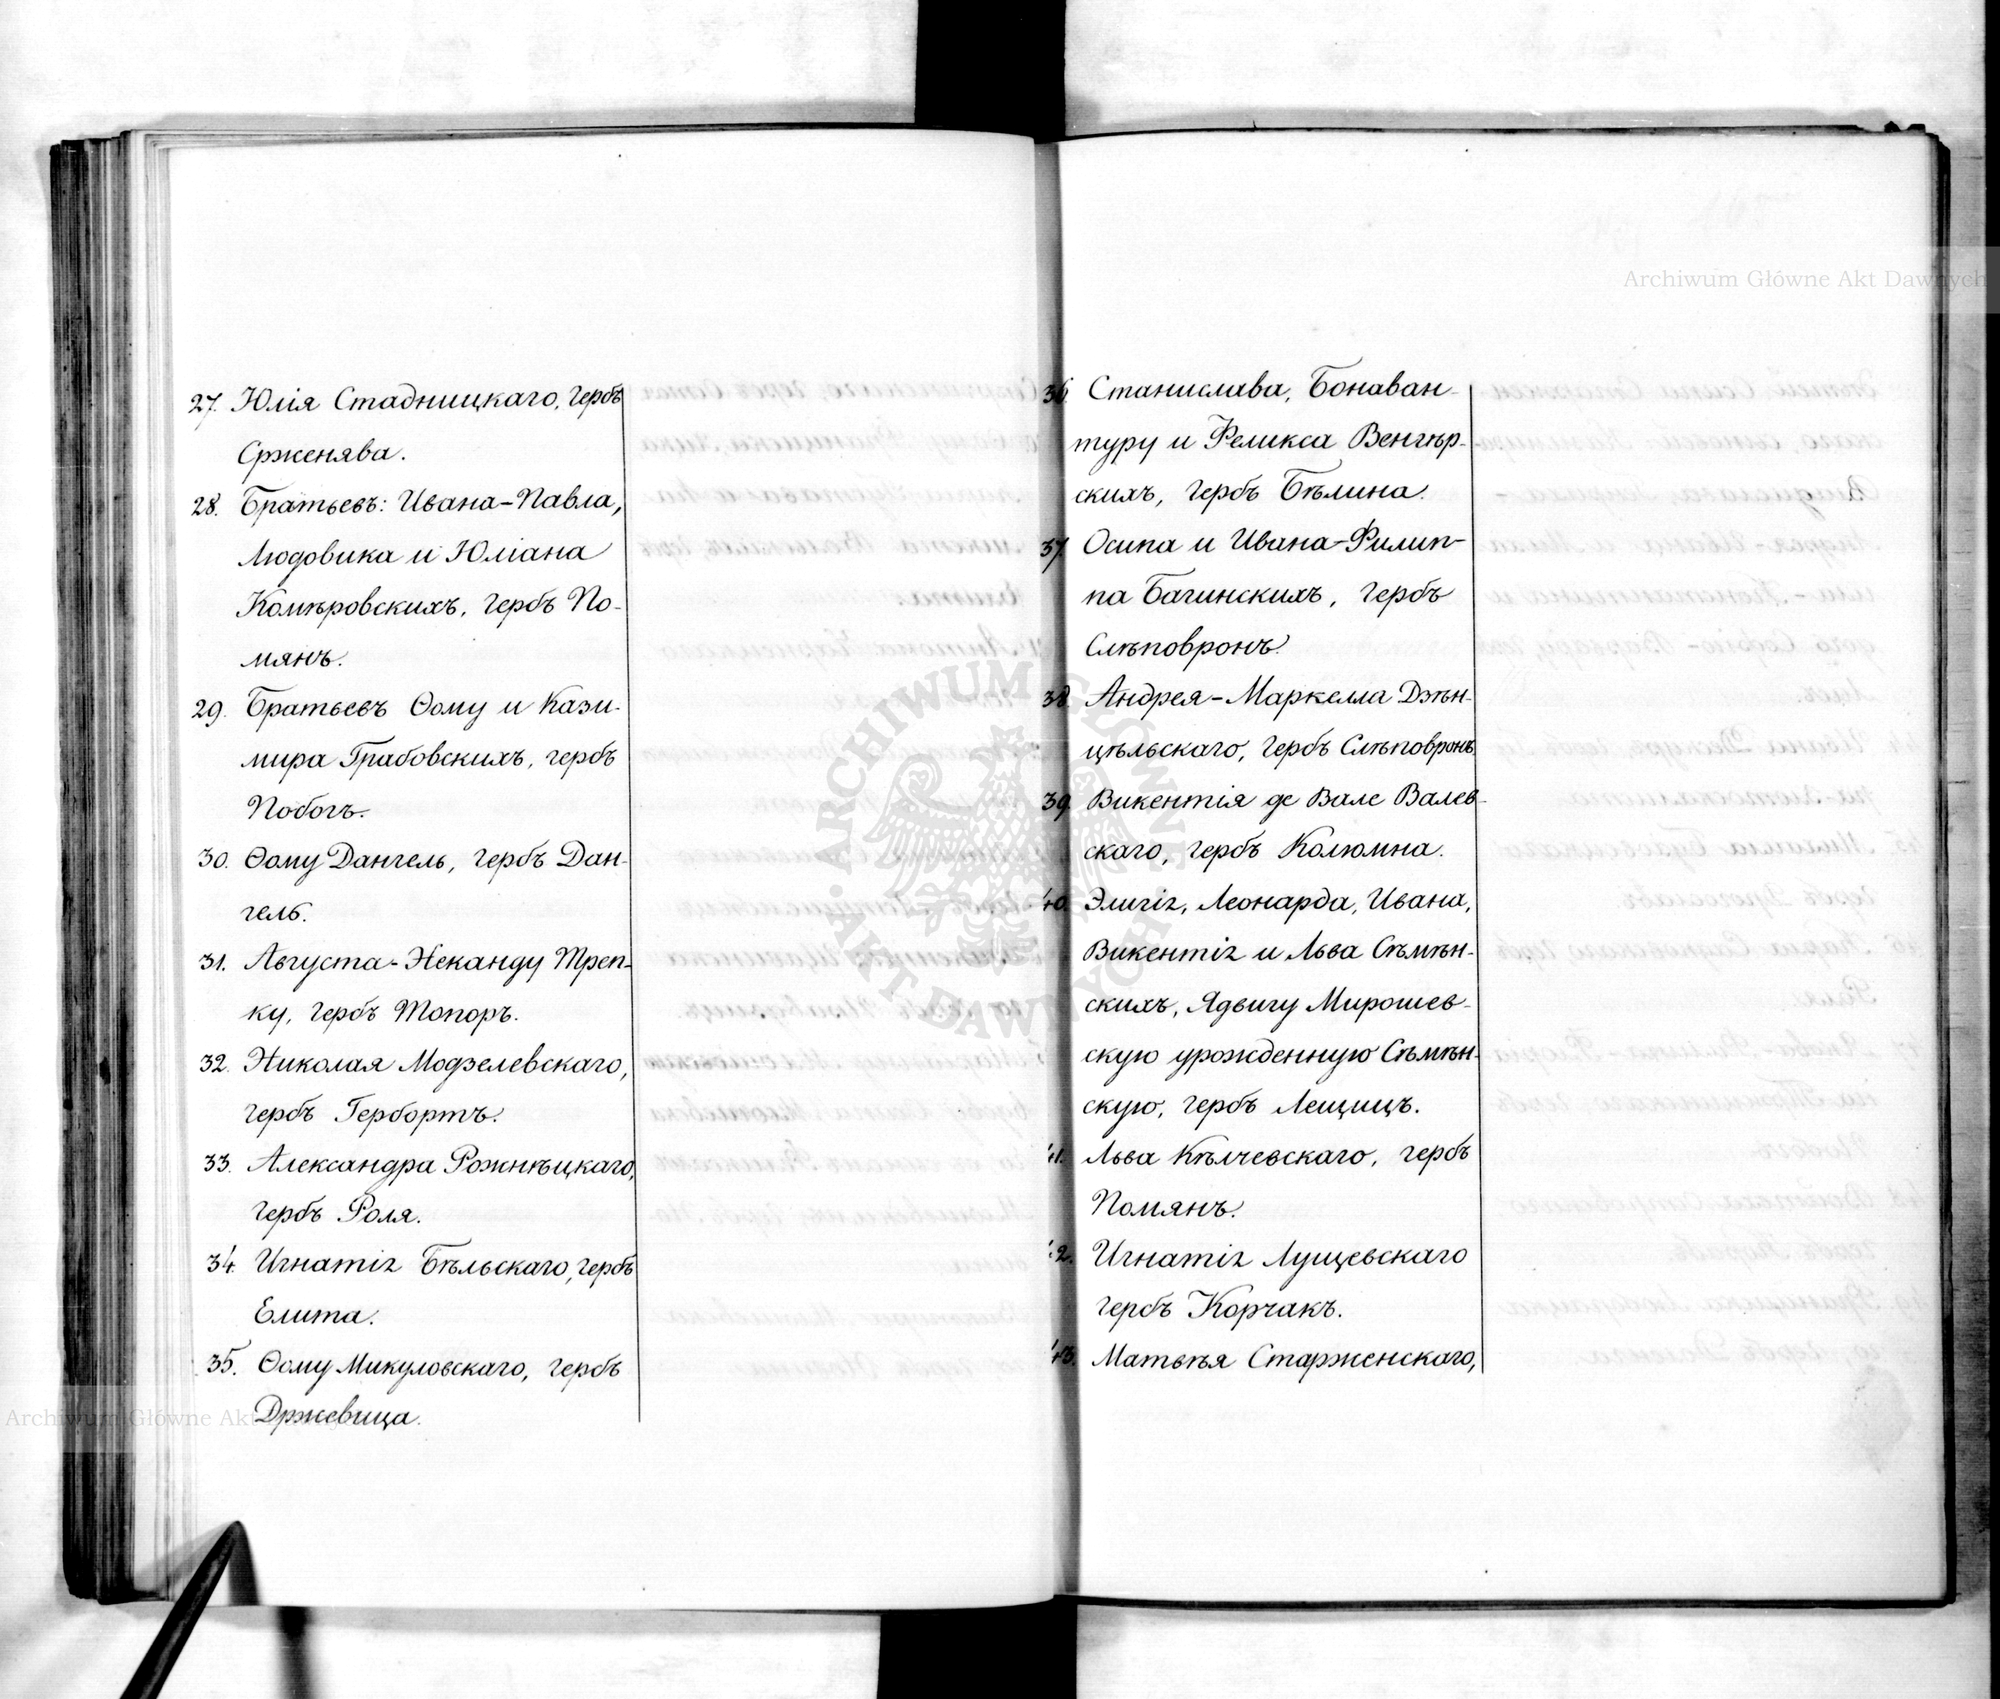 27. Юлія Стадницкаго, гербъ
Срженява.
28. Братьевъ: Ивана-Павла,
Людовика и Юліана
Комѣровскихъ, гербъ По-
мянъ.
29. Братьевъ Ѳому и Кази-
мира Грабовскихъ, гербъ
Побогъ.
30. Ѳому Дангель, гербъ Дан-
гель.
31. Августа-Неканду Треп-
ку, гербъ Топоръ.
32. Николая Модзелевскаго,
гербъ Гербортъ.
33. Александра Рожнѣцкаго,
гербъ Роля.
34. Игнатія Бѣльскаго, гербъ
Елита.
35. Ѳому Микуловскаго, гербъ
Држевица.
36. Станислава, Бонаван-
туру и Феликса Венгѣр-
скихъ, гербъ Бѣлина.
37. Осипа и Ивана-Филип-
па Багинскихъ, гербъ
Слѣповронъ.
38. Андрея-Маркелла Дзѣн-
цѣльскаго, гербъ Слѣповронъ
39. Викентія де Вале Валев-
скаго, гербъ Колюмна.
40. Элигія, Леонарда, Ивана,
Викентія и Льва Сѣмѣн-
скихъ, Ядвигу Мирошев-
скую урожденную Сѣмѣн-
скую, гербъ Лещицъ.
41. Льва Кѣлчевскаго, гербъ
Помянъ.
42. Игнатія Лущевскаго
гербъ Корчакъ.
43. Матвѣя Старженскаго,
Archiwum Główne Akt Dawnych
ARCHIWUM GŁÓWNE AKT DAWNYCH
Archiwum Główne Akt